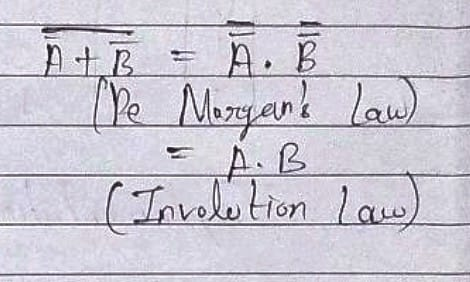 $\overline{\overline{A} + \overline{B}} = \overline{\overline{A}} . \overline{\overline{B}}$
(De Morgan's Law)
= A.B
(Involution Law)